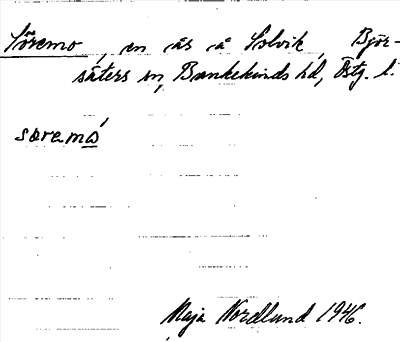 Söremo, en ås å Solvik, Björ-
säters sn, Bankekinds hd, Östg. l.
soremó
Maja Nordlund 1946.